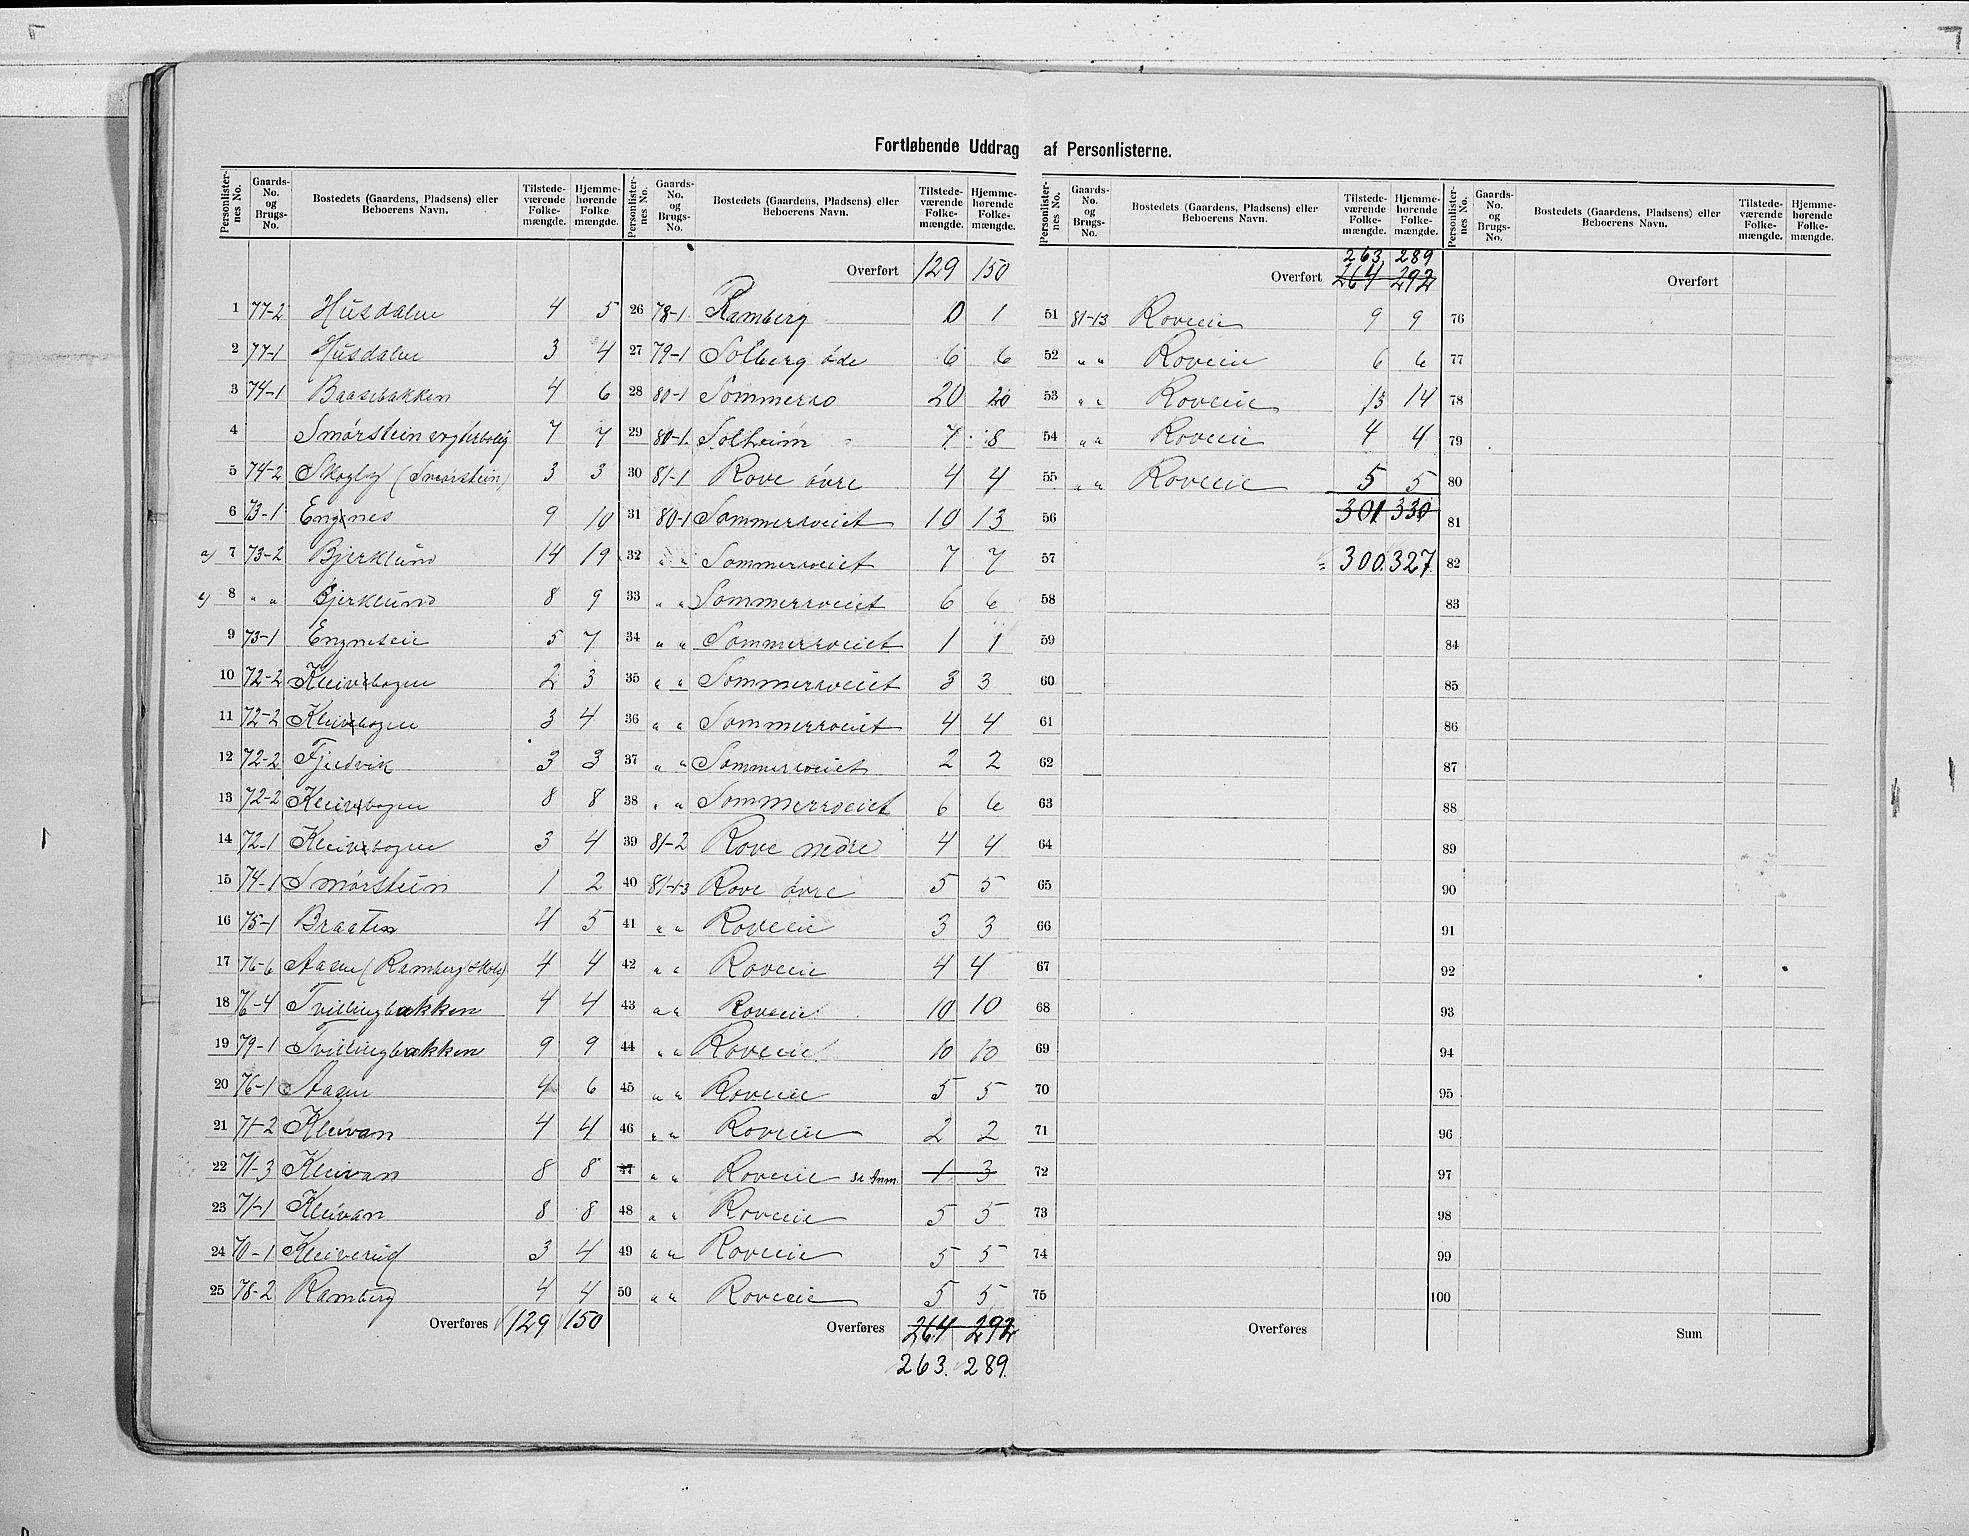 Fortløbende Uddrag af Personlisterne.
Personlister-nes No. | Gaards-No. og Brugs-No. | Bostedets (Gaardens, Pladsens) eller Beboerens Navn. | Tilstede-værende Folke-mængde. | Hjemme-hørende Folke mængde.
1 77-2 Husdalen 4 5
2 77-1 Husdalen 3 4
3 74-1 Baasebakken 4 6
4 Smørstein vogterbolig 7 7
5 74-2 Skogly (Smørstein) 3 3
6 73-1 Engnes 9 10
a) 7 73-2 Bjerklund 14 19
8 " " Bjerklund 8 9
9 73-1 Engneseie 5 7
10 72-2 Kleivbogen 2 3
11 72-2 Kleivbogen 3 4
12 72-2 Fjeldvik 3 3
13 72-2 Kleivbogen 8 8
14 72-1 Kleivbogen 3 4
15 74-1 Smørstein 1 2
16 75-1 Braaten 4 5
17 76-6 Aasen (Ramberg skole) 4 4
18 76-4 Tvillingbakken 4 4
19 79-1 Tvillingbakken 9 9
20 76-1 Aasen 4 6
21 71-2 Kleivan 4 4
22 71-3 Kleivan 8 8
23 71-1 Kleivan 8 8
24 70-1 Kleiverud 3 4
25 78-2 Ramberg 4 4
Overføres 129 150
Personlister-nes No. | Gaards-No. og Brugs-No. | Bostedets (Gaardens, Pladsens) eller Beboerens Navn. | Tilstede-værende Folke-mængde. | Hjemme-hørende Folke-mængde.
Overført 129 150
26 78-1 Ramberg 0 1
27 79-1 Solberg øde 6 6
28 80-1 Sommerro 20 20
29 80-1 Solheim 7 8
30 81-1 Rove øvre 4 4
31 80-1 Sommerroeiet 10 13
32 " " Sommerroeiet 7 7
33 " " Sommerroeiet 6 6
34 " " Sommerroeiet 1 1
35 " " Sommerroeiet 3 3
36 " " Sommerroeiet 4 4
37 " " Sommerroeiet 2 2
38 " " Sommerroeiet 6 6
39 81-2 Rove nedre 4 4
40 81-13 Rove øvre 5 5
41 " " Roveeie 3 3
42 " " Roveeie 4 4
43 " " Roveeie 10 10
44 " " Roveeie 10 10
45 " " Roveeie 5 5
46 " " Roveeie 2 2
47 " " Roveeie se Anm. 1 3
48 " " Roveeie 5 5
49 " " Roveeie 5 5
50 " " Roveeie 5 5
Overføres 264 292
263. 289.
Personlister-nes No. | Gaards-No. og Brugs-No. | Bostedets (Gaardens, Pladsens) eller Beboerens Navn. | Tilstede-værende Folke-mængde. | Hjemme-hørende Folke-mængde.
263. 289
Overført 264 292
51 81-13 Roveeie 9 9
52 " " Roveeie 6 6
53 " " Roveeie 13 14
54 " " Roveeie 4 4
55 " " Roveeie 5 5
56 301 330
57 = 300. 327.
58
59
60
61
62
63
64
65
66
67
68
69
70
71
72
73
74
75
Overføres
Personlister-nes No. | Gaards-No. og Brugs-No. | Bostedets (Gaardens, Pladsens) eller Beboerens Navn. | Tilstede-værende Folke-mængde. | Hjemme-hørende Folke-mængde.
Overført
76
77
78
79
80
81
82
83
84
85
86
87
88
89
90
91
92
93
94
95
96
97
98
99
100
Sum